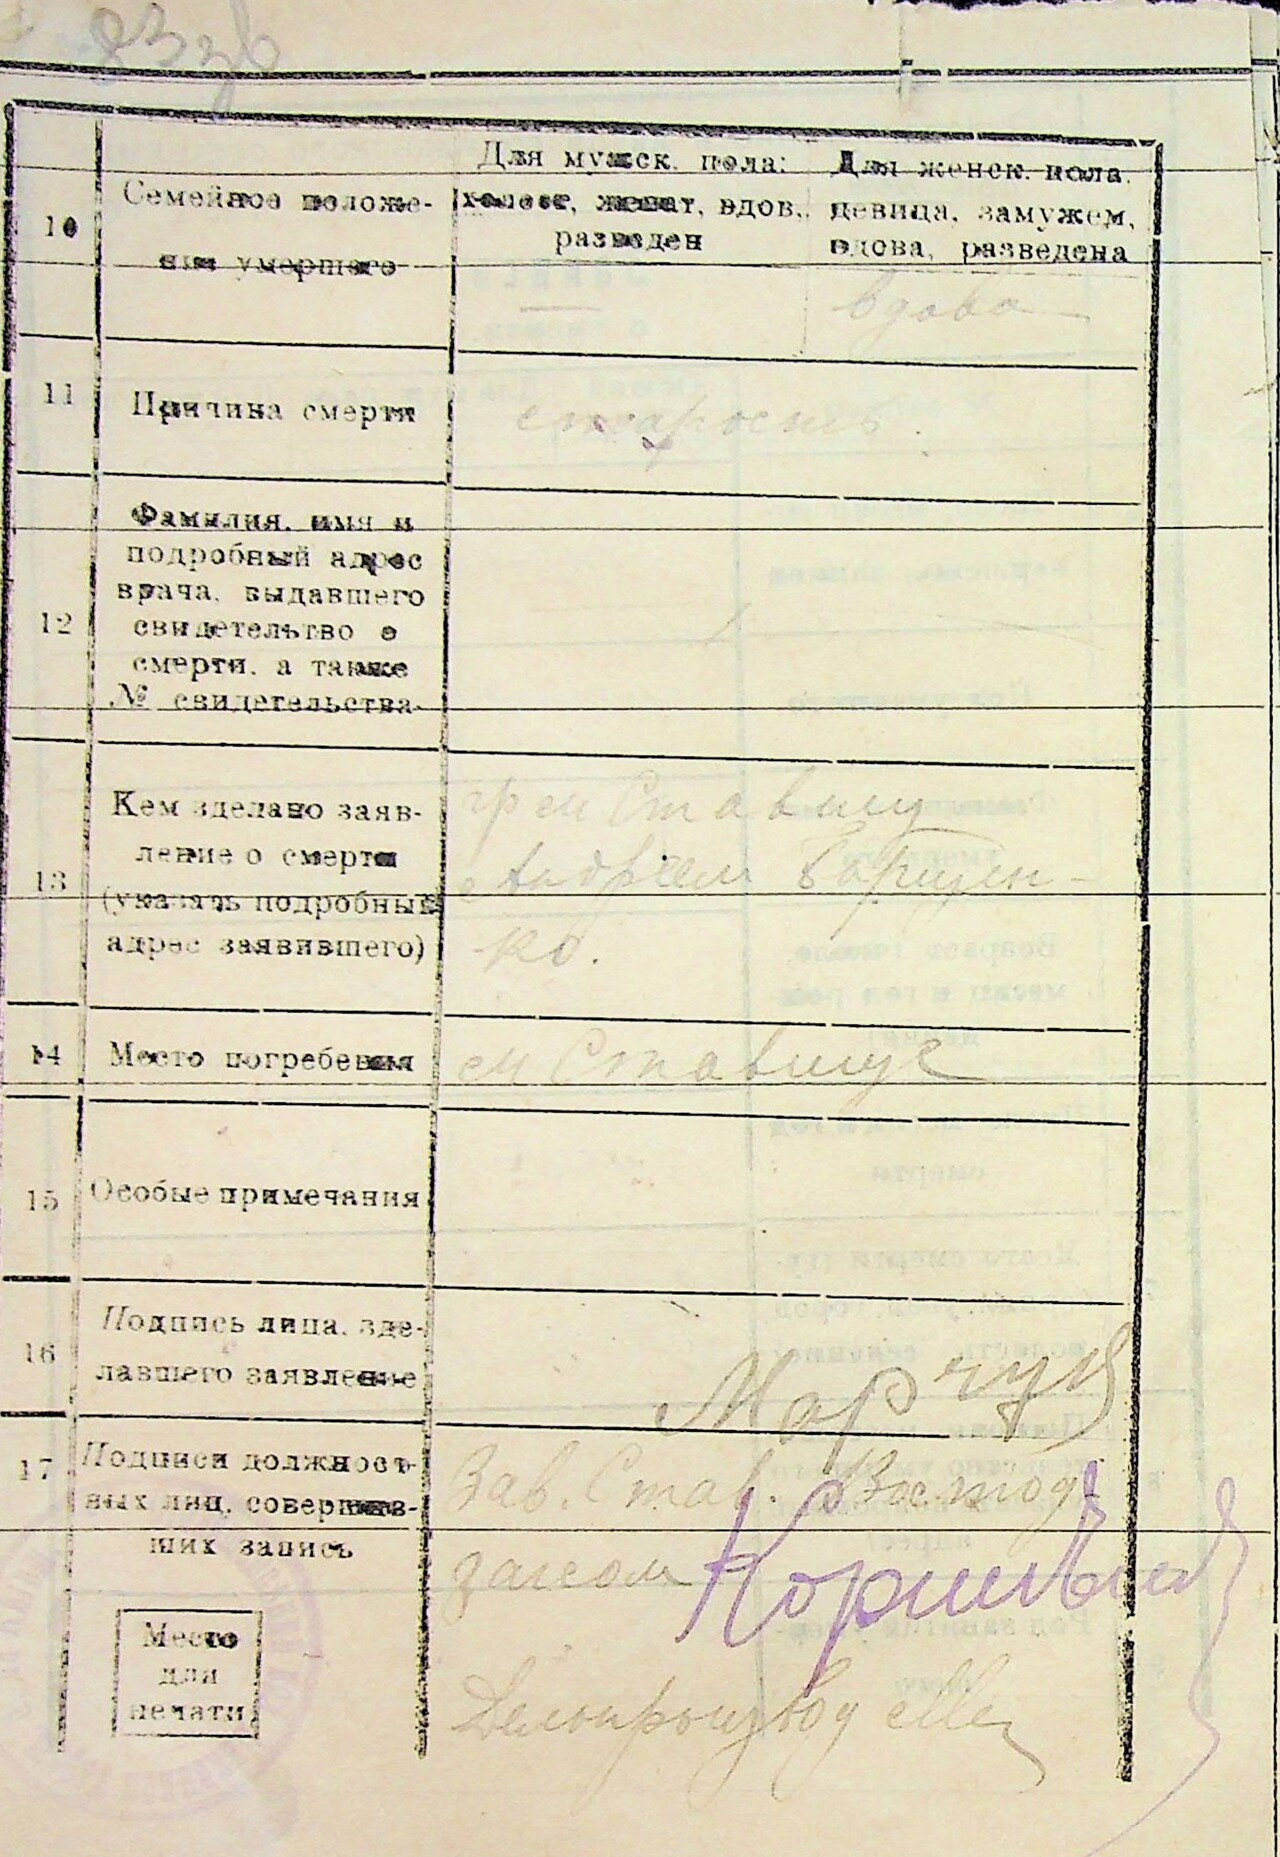 10
Семейное положе-
ния умершего
Для мужск. пола:
холост, женат, вдов.,
разведен
Для женск. пола.
девица, замужем,
вдова, разведена
вдова
11
Причина смерти
старость.
12
Фамилия, имя и
подробный адрес
врача, выдавшего
свидетельство о
смерти, а также
№ свидетельства.
13
Кем зделано заяв-
ление о смерти
(указать подробный
адрес заявившего)
гр см Ставищ
Андреем
ко.
14
Место погребения
см Ставище
15
Особые примечания
16
Подпись лица, зде-
лавшего заявление
Марчук
17
Подписи должност-
ных лиц, совершив-
ших запись
Зав. Став.
загсом
Место
для
печати
Делопрызвод